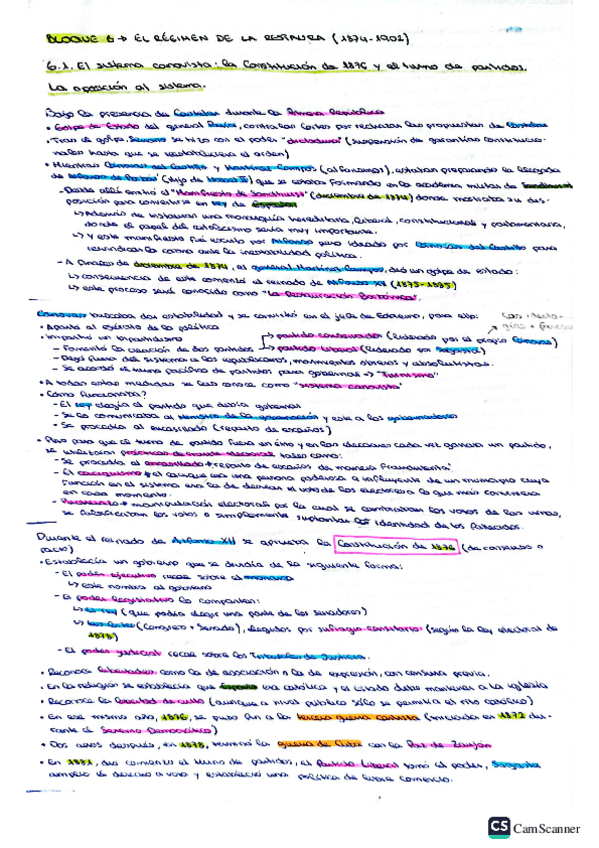 BLOQUE 6 → EL RÉGIMEN DE LA RESTAURA (1874-1902)
6.1. El sistema canovista: la Constitución de 1876 y el turno de partidos.
La oposición al sistema.
Bajo la presencia de Castelar durante la Primera República
• Golpe de Estado del general Pavía, contra las Cortes por rechazar las propuestas de Castelar
• Tras el golpe, Serrano se hizo con el poder "dictadura" (suspensión de garantías constitucio-
nales hasta que se restableciera el orden)
• Mientras Cánovas del Castillo y Martínez Campos (alfonsinos), estaban preparando la llegada
de Alfonso de Borbón (hijo de Isabel II) que se estaba formando en la academia militar de Sandhurst
- Desde allí emitió el "Manifiesto de Sandhurst" (diciembre de 1874) donde mostraba su dis-
posición para convertirse en rey de España
↳ Además de instaurar una monarquía hereditaria, liberal, constitucional y parlamentaria,
donde el papel del catolicismo sería muy importante.
↳ Y este manifiesto fue escrito por Alfonso pero ideado por Cánovas del Castillo para
reivindicar la corona ante la inestabilidad política.
- A finales de diciembre de 1874, el general Martínez Campos, dió un golpe de estado:
↳ consecuencia de este comenzó el reinado de Alfonso XII (1875-1885)
↳ este proceso será conocido como "La Restauración Borbónica".
Cánovas buscaba dar estabilidad y se convirtió en el jefe de Gobierno, para ello:
• Apartó al ejército de la política
• Implantó un bipartidismo
- Fomentó la creación de dos partidos
→ partido conservador (liderado por el propio Cánovas)
→ partido liberal (liderado por Sagasta)
- Dejó fuera del sistema a los republicanos, movimientos obreros y absolutistas.
- Se acordó el turno pacífico de partidos para gobernar → "Turnismo"
• A todas estas medidas se les conoce como "sistema canovista"
• Cómo funcionaba?
- El rey elegía el partido que debía gobernar
- Se lo comunicaba al ministro de la gobernación y este a los gobernadores
- Se procedía al encasillado (reparto de escaños)
• Pero para que el turno de partido fuera un éxito y en las elecciones cada vez ganara un partido,
se utilizaron prácticas de fraude electoral, tales como:
- Se procedía al encasillado → reparto de escaños de manera fraudulenta.
- El caciquismo → el cacique era una persona poderosa e influyente de un municipio cuya
función en el sistema era la de desviar el voto de los electores a lo que más convenía
en cada momento.
- Pucherazo → manipulación electoral por la cual se cambiaban los votos de las urnas,
se falsificaban los votos o simplemente suplantar la identidad de los fallecidos.
Durante el reinado de Alfonso XII se aprueba la Constitución de 1876 (de consenso o
pacto)
• Establecía un gobierno que se dividía de la siguiente forma:
- El poder ejecutivo recae sobre el monarca
↳ este nombra al gobierno
- El poder legislativo lo comparten:
↳ el rey (que podía elegir una parte de los senadores)
↳ las Cortes (Congreso + Senado), elegidos por sufragio censitario (según la ley electoral de
1878)
- El poder judicial recae sobre los Tribunales de Justicia.
• Reconoce libertades como la de asociación o la de expresión, con censura previa.
• En la religión se establecía que España era católica y el Estado debía mantener a la iglesia
• Reconoce la libertad de culto (aunque a nivel público sólo se permitía el rito católico)
• En ese mismo año, 1876, se puso fin a la tercera guerra carlista (iniciada en 1872 du-
rante el Sexenio Democrático)
• Dos años después, en 1878, terminó la guerra de Cuba con la Paz de Zanjón
• En 1881, dio comienzo el turno de partidos, el Partido Liberal tomó el poder, Sagasta
amplió el derecho a voto y estableció una política de libre comercio.
CS CamScanner